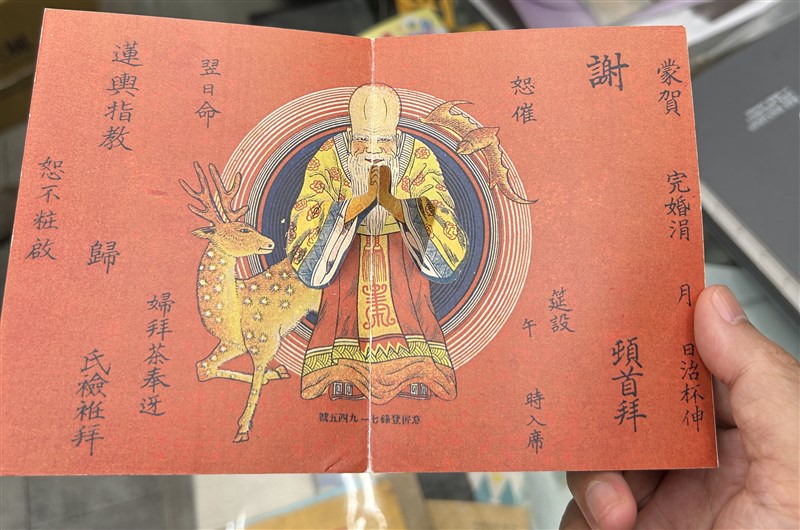 蒙賀 完婚涓 月 日治杯伸
謝
頓首拜
筵設
午 時入席
恕催
意匠登錄七一九四五號
翌日命
婦拜茶奉迓
蓮輿指教
歸
氏檢衽拜
恕不粧啟